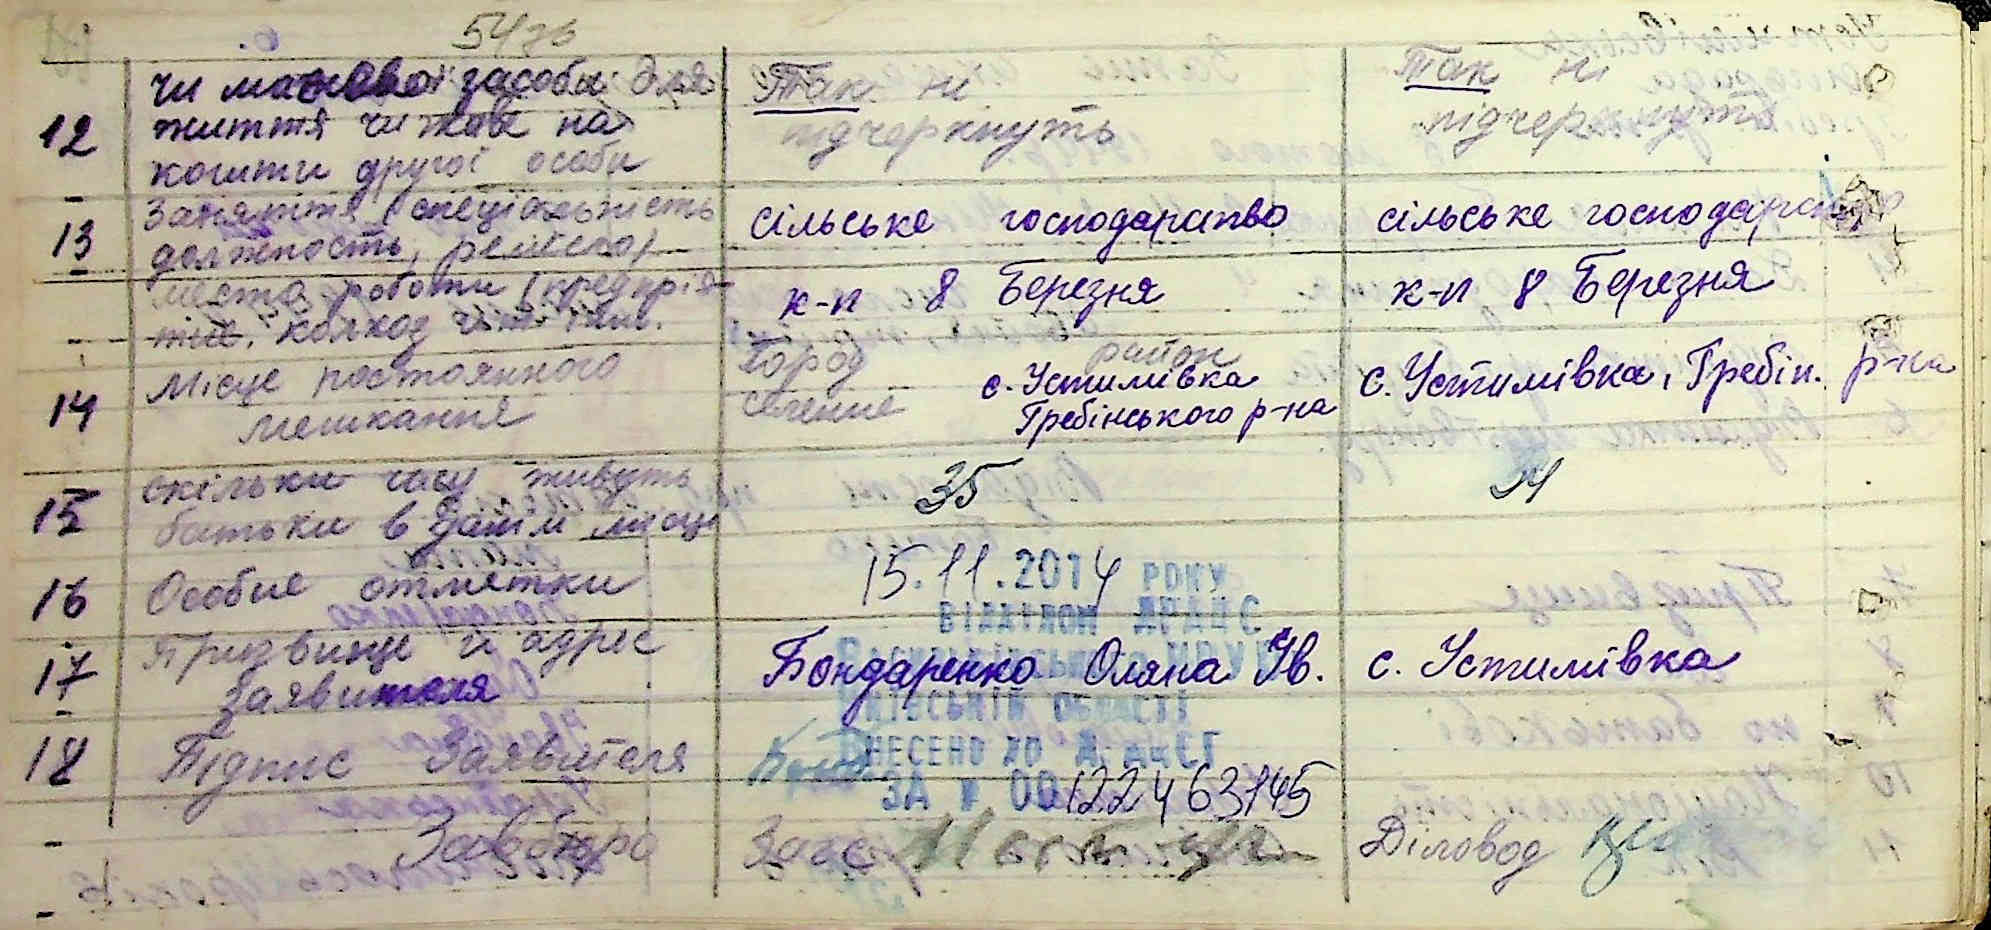 12 чи мають свої засоби для Так ні Так ні
життя чи жив на підчеркнуть підчеркнуть
кошти другої особи
13 Заняття (спеціальність сільське господарство сільське господарство
должность, ремесло)
место роботи (предприя- к-п 8 Березня к-п 8 Березня
тие, колход
14 Місце постоянного город район с. Устимівка, Гребін. р-на
мешкання селение с. Устимівка
Гребінського р-на
15 скільки часу живуть 35 24
батьки в даним місце
16 Особие отметки 15.11.2014 РОКУ
ВІДДІЛОМ ДРАЦС
17 Призвище и адрес Бондаренко Оляна Ів. с. Устимівка
Заявителя
КИЇВСЬКІЙ ОБЛАСТІ
18 Підпис Заявителя ВНЕСЕНО ДО ДРАЦСГ
ЗА № 00122463145
Завбюро Загс Діловод